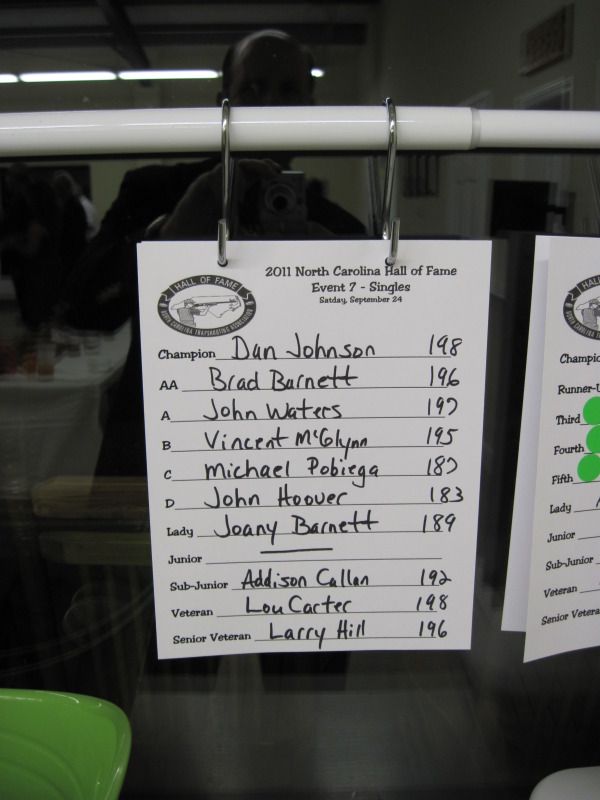 HALL OF FAME
NORTH CAROLINA TRAPSHOOTING ASSOCIATION
2011 North Carolina Hall of Fame
Event 7 - Singles
Satday, September 24
Champion Dan Johnson 198
AA Brad Barnett 196
A John Waters 197
B Vincent McGlynn 195
C Michael Pobiega 187
D John Hoover 183
Lady Joany Barnett 189
Junior
Sub-Junior Addison Callan 192
Veteran Lou Carter 198
Senior Veteran Larry Hill 196
Runner-U
Third
Fourth
Fifth
Lady
Junior
Sub-Junior
Veteran
Senior Vetera